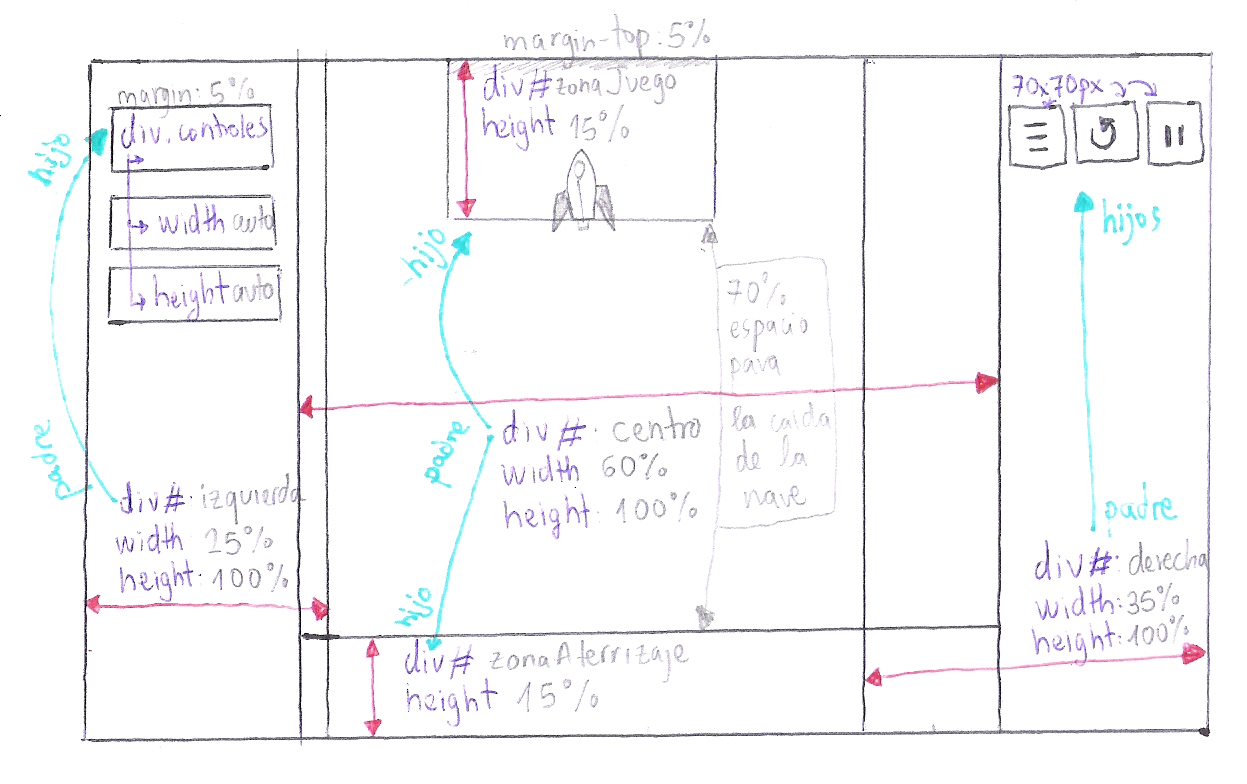 margin-top: 5%
margin: 5%
div.controles
width auto
height auto
hijo
padre
div#·izquierda
width 25%
height: 100%
div#zonaJuego
height 15%
hijo
padre
hijo
div#·centro
width 60%
height: 100%
70%
espacio
para
la caida
de la
nave
div# zonaAterrizaje
height 15%
70x70px
hijos
padre
div#: derecha
width: 35%
height: 100%